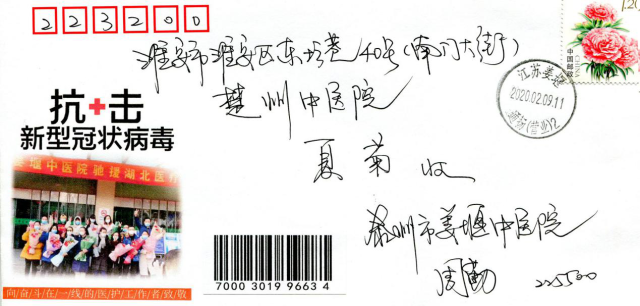 223200
1.20
中国邮政
CHINA
淮安市淮安区东圩巷40号(南门大街)
楚州中医院
江苏姜堰
2020.02.09.11
(营业)2
抗+击
新型冠状病毒
夏菊 收
姜堰中医院驰援湖北医疗
泰州市姜堰中医院
周勤 225500
7000 3019 9663 4
向奋斗在一线的医护工作者致敬